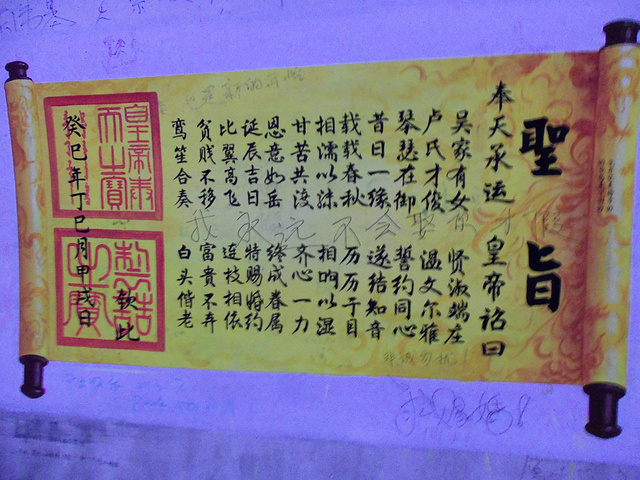 聖旨
奉天承运 皇帝诏曰
吴家有女 贤淑端庄
卢氏才俊 温文尔雅
琴瑟在御 誓约同心
昔日一缘 遂结知音
载载春秋 历历于目
相濡以沫 相呴以湿
甘苦共渡 齐心一力
恩意如岳 终成眷属
诞辰吉日 特赐婚约
比翼高飞 连枝相依
贫贱不移 富贵不弃
鸾笙合奏 白头偕老
钦此
癸巳年丁巳月甲戌日
皇帝奉天之寶
制誥之寶
我永远不会娶
非诚勿扰！